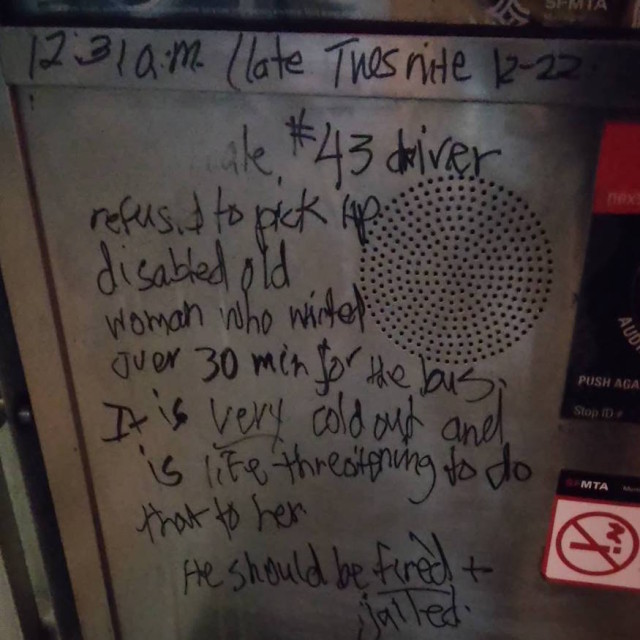 SFMTA
12:31 a.m. (late Tues nite 12-22
#43 driver
refused to pick up
disabled old
woman who waited
over 30 min for the bus.
It is very cold out and
is life threatening to do
that to her
He should be fired +
jailed.
PUSH AGA
Stop ID #
MTA